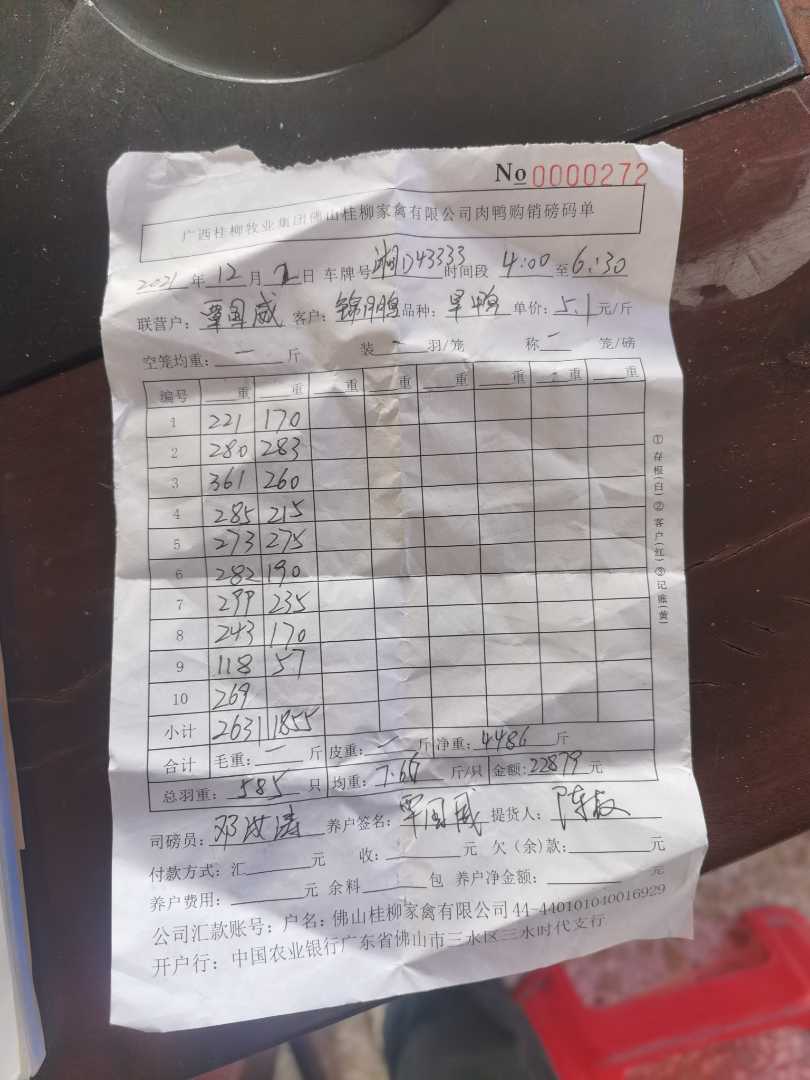 No 0000272
广西桂柳牧业集团佛山桂柳家禽有限公司肉鸭购销磅码单
2021 年 12 月 2 日 车牌号 湘D43333 时间段 4:00 至 6:30
联营户: 覃国威 客户: 锦鹏 品种: 旱鸭 单价: 5.1 元/斤
空笼均重: — 斤 装 — 羽/笼 称 — 笼/磅
编号 重 重 重 重 重 重 重 重
1 221 170
2 280 283
3 361 260
4 285 215
5 273 275
6 282 190
7 299 235
8 243 170
9 118 57
10 269
小计 2631 1855
合计 毛重: — 斤 皮重: — 斤 净重: 4486 斤
总羽重: 585 只 均重: 7.67 斤/只 金额: 22879 元
司磅员: 邓汝涛 养户签名: 覃国威 提货人: 陈
付款方式: 汇 元 收: 元 欠(余)款: 元
养户费用: 元 余料 包 养户净金额: 元
公司汇款账号: 户名: 佛山桂柳家禽有限公司 44-440101040016929
开户行: 中国农业银行广东省佛山市三水区三水时代支行
①存根(白)②客户(红)③记账(黄)